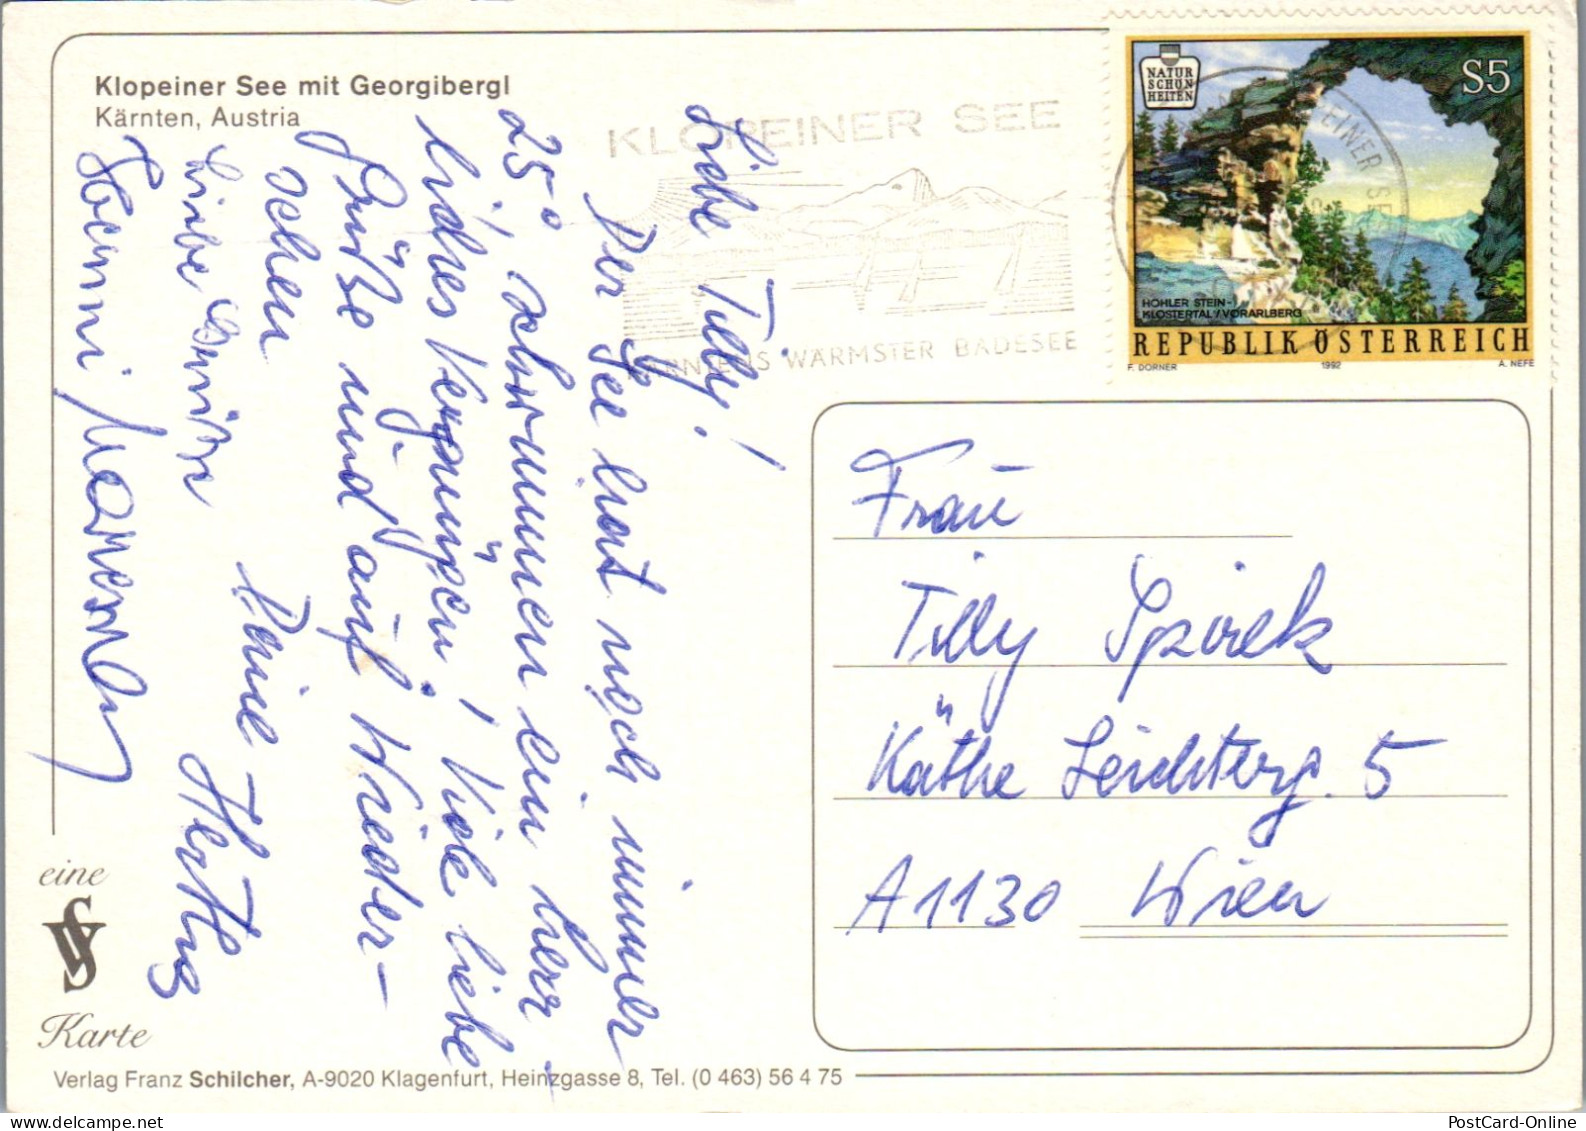 Klopeiner See mit Georgibergl
Kärnten, Austria
KLOPEINER SEE
KÄRNTENS WÄRMSTER BADESEE
NATUR
SCHÖN
HEITEN
S5
HOHLER STEIN-
KLOSTERTAL/VORARLBERG
REPUBLIK ÖSTERREICH
F. DORNER 1992 A. NEFE
Liebe Tilly!
Der See hat noch immer
25°, schwimmen ein herr-
liches Vergnügen! Viele liebe
Grüße und auf Wieder-
sehen
Deine Hertha
Liebe Grüße
Frau
Tilly Spirek
Käthe Leichterg. 5
A 1130 Wien
eine
VFS
Karte
Verlag Franz Schilcher, A-9020 Klagenfurt, Heinzgasse 8, Tel. (0 463) 56 4 75
PostCard-Online